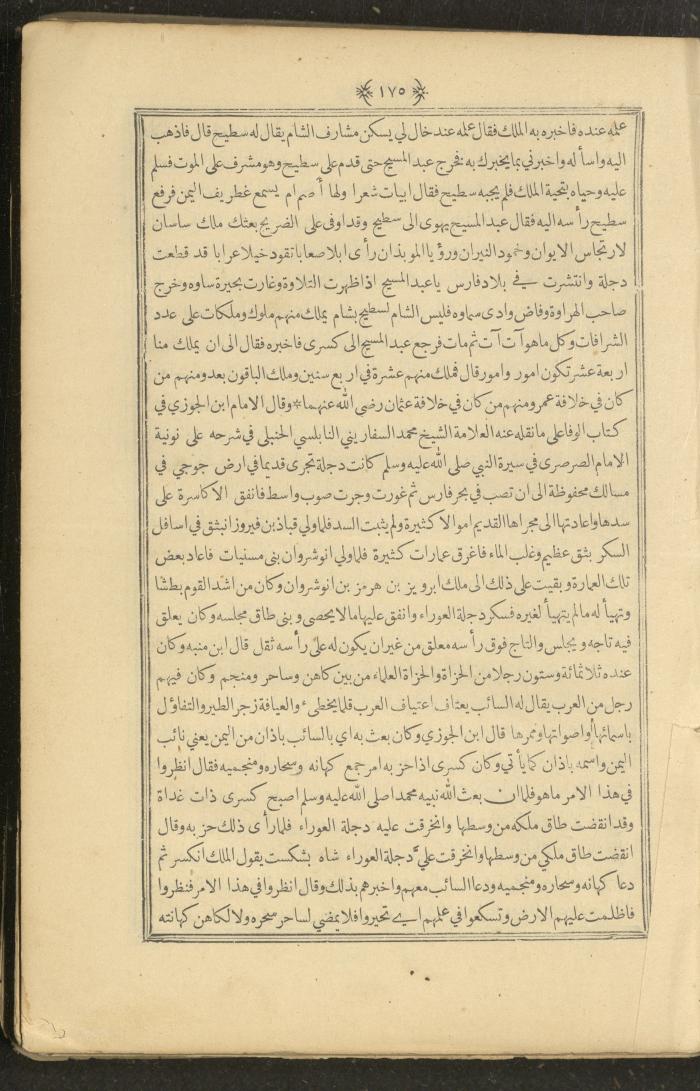 ١٧٥
علمه عنده فاخبره به الملك فقال علمه عند خال لي يسكن مشارف الشام يقال له سطيح قال فاذهب
اليه واسأله واخبرني بما يخبرك به فخرج عبد المسيح حتى قدم على سطيح وهو مشرف على الموت فسلم
عليه وحياه بتحية الملك فلم يجبه سطيح فقال ابيات شعرا ولها أصم ام يسمع غطريف اليمن فرفع
سطيح رأسه اليه فقال عبد المسيح يهوى الى سطيح وقد اوفى على الضريح بعثك ملك ساسان
لارتجاس الايوان وخمود النيران ورؤيا الموبذان رأى ابلا صعابا تقود خيلا عرابا قد قطعت
دجلة وانتشرت في بلاد فارس يا عبد المسيح اذا ظهرت التلاوة وغارت بحيرة ساوه وخرج
صاحب الهراوة وفاض وادى سماوه فليس الشام لسطيح بشام يملك منهم ملوك وملكات على عدد
الشرافات وكل ما هو آت آت ثم مات فرجع عبد المسيح الى كسرى فاخبره فقال الى ان يملك منا
اربعة عشر تكون امور وامور قال فملك منهم عشرة في اربع سنين وملك الباقون بعد ومنهم من
كان في خلافة عمر ومنهم من كان في خلافة عثمان رضى الله عنهما * وقال الامام ابن الجوزي في
كتاب الوفا على ما نقله عنه العلامة الشيخ محمد السفاريني النابلسي الحنبلي في شرحه على نونية
الامام الصرصرى في سيرة النبي صلى الله عليه وسلم كانت دجلة تجرى قديما في ارض جوجي في
مسالك محفوظة الى ان تصب في بحر فارس ثم غورت وجرت صوب واسط فانفق الاكاسرة على
سدها واعادتها الى مجراها القديم اموالا كثيرة ولم يثبت السد فلما ولي قباذ بن فيروز انبثق في اسافل
السكر بثق عظيم وغلب الماء فاغرق عمارات كثيرة فلما ولي انوشروان بنى مسنيات فاعاد بعض
تلك العمارة وبقيت على ذلك الى ملك ابرويز بن هرمز بن انوشروان وكان من اشد القوم بطشا
وتهيأ له مالم يتهيأ لغيره فسكر دجلة العوراء وانفق عليها مالا يحصى وبنى طاق مجلسه وكان يعلق
فيه تاجه ويجلس والتاج فوق رأسه معلق من غير ان يكون له على رأسه ثقل قال ابن منبه وكان
عنده ثلاثمائة وستون رجلا من الحزاة والحزاة العلماء من بين كاهن وساحر ومنجم وكان فيهم
رجل من العرب يقال له السائب يعتاف اعتياف العرب قلما يخطىء والعيافة زجر الطير والتفاؤل
باسمائها واصواتها وممرها قال ابن الجوزي وكان بعث به اي بالسائب باذان من اليمن يعني نائب
اليمن واسمه باذان كما يأتي وكان كسرى اذا حزبه امر جمع كهانه وسحاره ومنجميه فقال انظروا
في هذا الامر ما هو فلما ان بعث الله نبيه محمدا صلى الله عليه وسلم اصبح كسرى ذات غداة
وقد انقضت طاق ملكه من وسطها وانخرقت عليه دجلة العوراء فلما رأى ذلك حزبه وقال
انقضت طاق ملكي من وسطها وانخرقت عليّ دجلة العوراء شاه بشكست يقول الملك انكسر ثم
دعا كهانه وسحاره ومنجميه ودعا السائب معهم واخبرهم بذلك وقال انظروا في هذا الامر فنظروا
فاظلمت عليهم الارض وتسكعوا في علمهم اي تحيروا فلا يمضي لساحر سحره ولا لكاهن كهانته